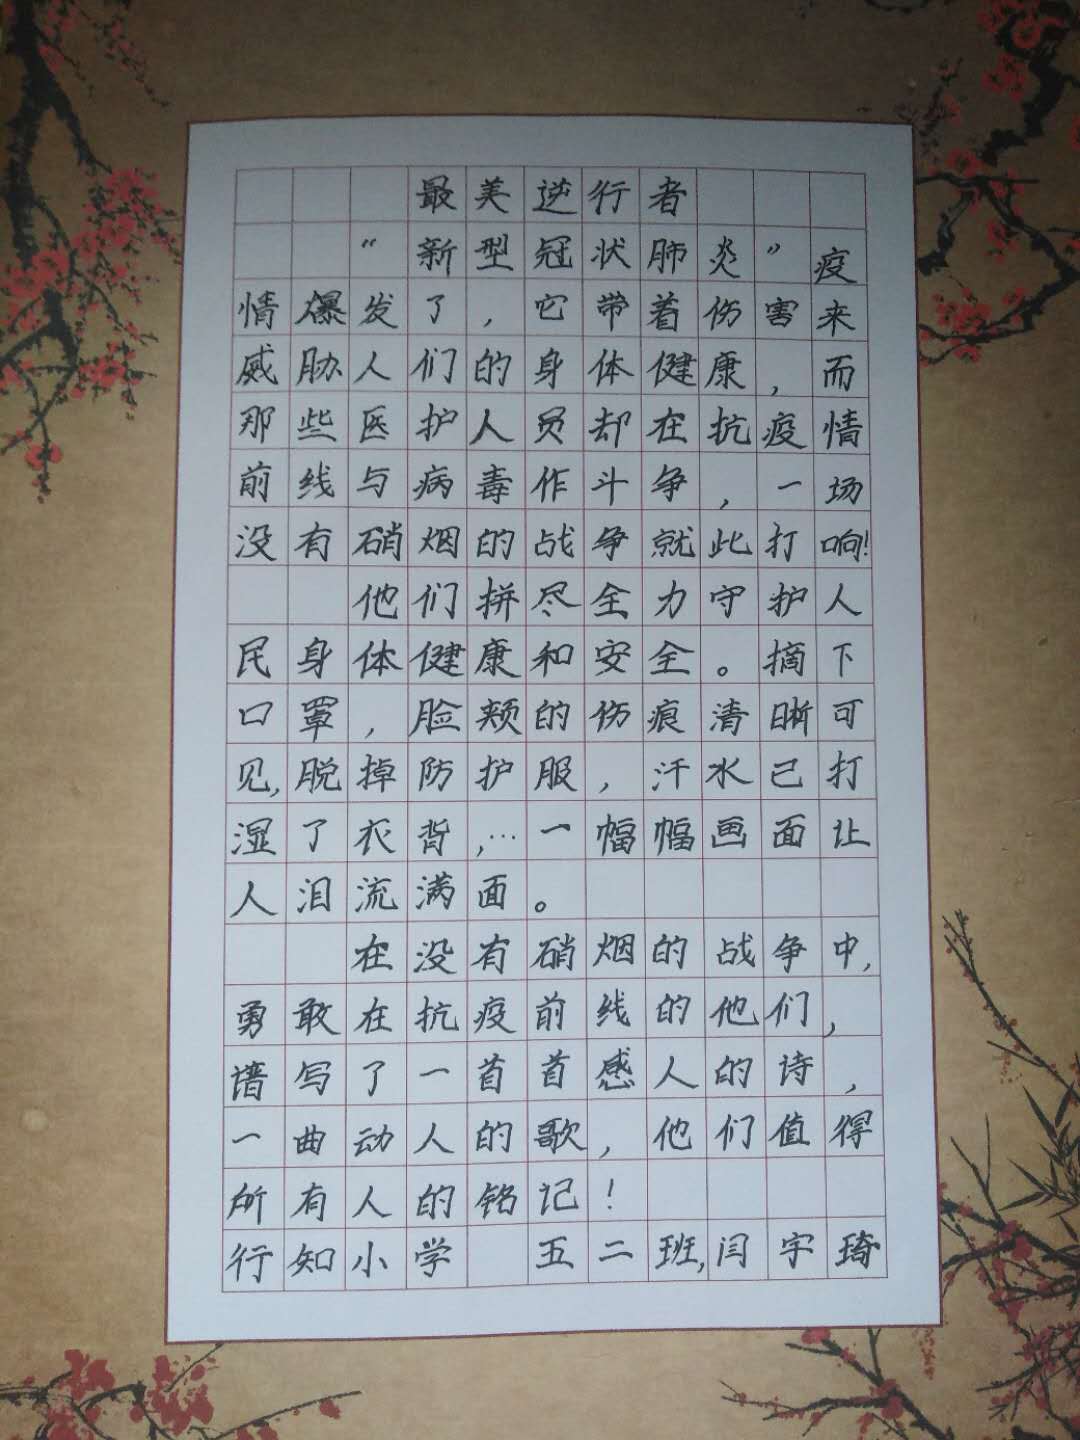 最美逆行者
“新型冠状肺炎”疫
情爆发了，它带着伤害来
威胁人们的身体健康，而
那些医护人员却在抗疫情
前线与病毒作斗争，一场
没有硝烟的战争就此打响!
他们拼尽全力守护人
民身体健康和安全。摘下
口罩，脸颊的伤痕清晰可
见,脱掉防护服，汗水已打
湿了衣背,…一幅幅画面让
人泪流满面。
在没有硝烟的战争中,
勇敢在抗疫前线的他们，
谱写了一首首感人的诗，
一曲动人的歌，他们值得
所有人的铭记！
行知小学 五二班,闫宇琦